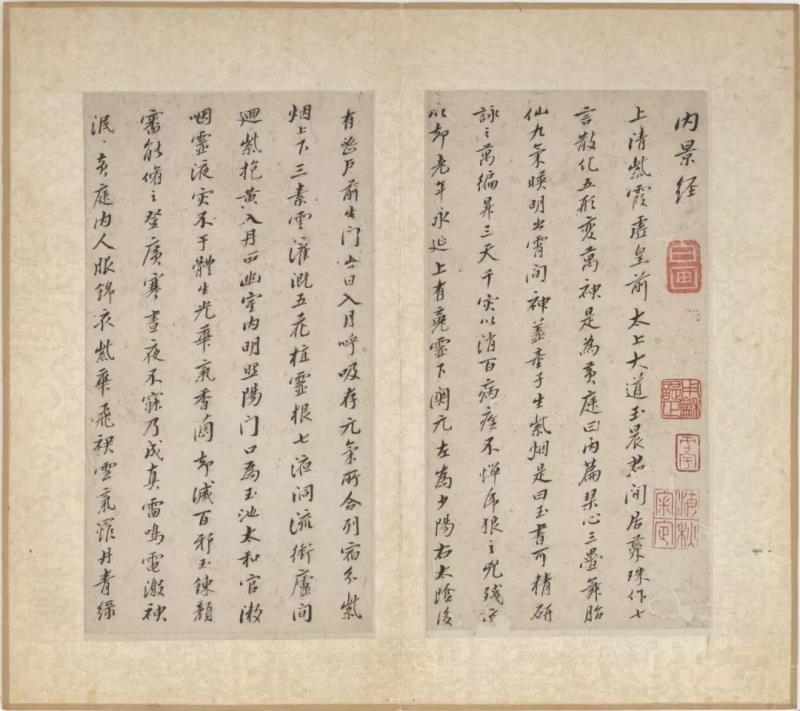 內景経
上清紫霞虛皇前太上大道玉晨君閒居蕊珠作七
言散化五形變萬神是為黃庭曰內篇琴心三疊舞胎
仙九氣暎明出霄間神蓋童子生紫烟是曰玉書可精研
詠之萬徧昇三天千灾以消百病痊不憚虎狼之兇殘亦
以却老年永延上有䰟靈下關元左為少陽右太陰後
有密戶前生門出日入月呼吸存元氣所合列宿分紫
烟上下三素雲灌溉五花植靈根七液洞流衝廬間
迴紫抱黃入丹田幽室內明照陽門口為玉池太和官漱
咽靈液灾不干體生光華氣香蘭却滅百邪玉鍊顏
審能脩之登廣寒晝夜不寐乃成真雷鳴電激神
泯泯黃庭內人服錦衣紫華飛裙雲氣羅丹青綠